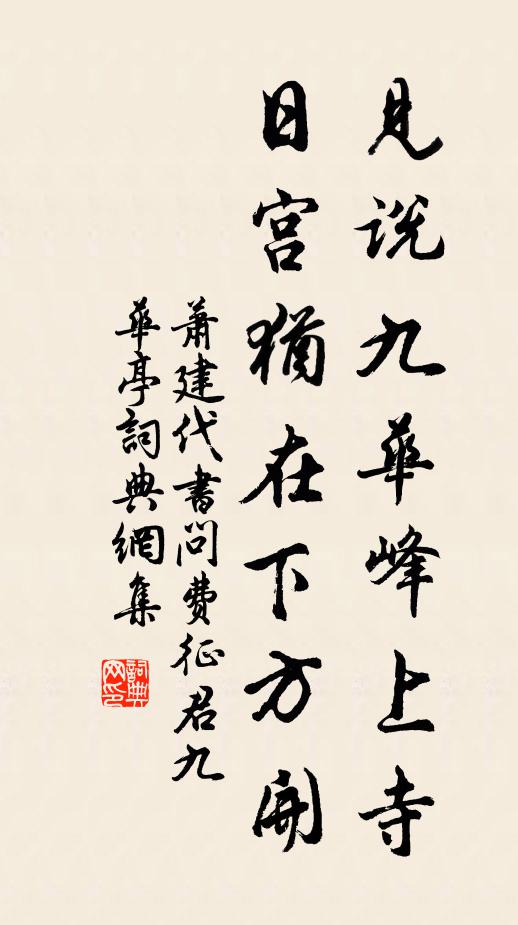 見說九華峰上寺
日宮猶在下方開
蕭建代書問費征君九
華亭詞典網集
詞典网印